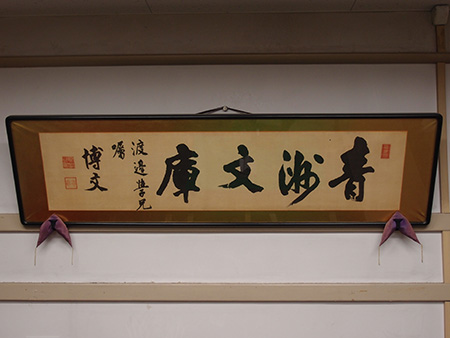 青洲文庫
渡邊學兄
囑
博文